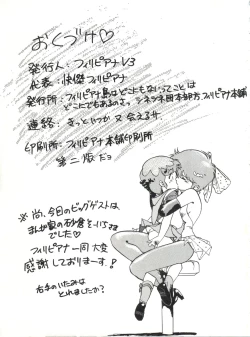 おくづけ♡
発行人：フィリピアナV3
代表：快傑フィリピアナ
発行所：フィリピアナ島はどこにもないってことは
どこにでもあるのさっ シネッネ団本部方フィリピアナ本舗
連絡：きっといつか又会えるサ
印刷所：フィリピアナ本舗印刷所
第二版だョ
※尚、今回のビッグゲストは
まんが界の砂倉そ〜いちさま
でした♡
フィリピアナ一同大変
感謝しておりまーす！
右手のいたみは
とれましたか？